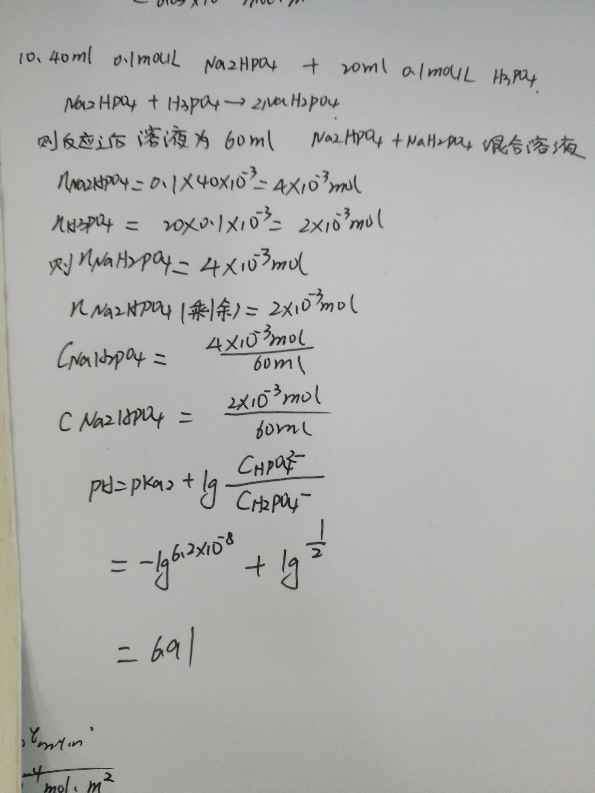 10. 40ml 0.1mol/L Na2HPO4 + 20ml 0.1mol/L H3PO4.
Na2HPO4 + H3PO4 → 2NaH2PO4.
则反应后溶液为60ml Na2HPO4 + NaH2PO4 混合溶液
nNa2HPO4 = 0.1×40×10⁻³ = 4×10⁻³mol
nH3PO4 = 20×0.1×10⁻³ = 2×10⁻³mol
则 nNaH2PO4 = 4×10⁻³mol
nNa2HPO4(剩余) = 2×10⁻³mol
CNaH2PO4 = 4×10⁻³mol / 60ml
CNa2HPO4 = 2×10⁻³mol / 60ml
pH = pKa2 + lg CHPO4²⁻ / CH2PO4⁻
= -lg6.2×10⁻⁸ + lg 1/2
= 6.91
mol. m²